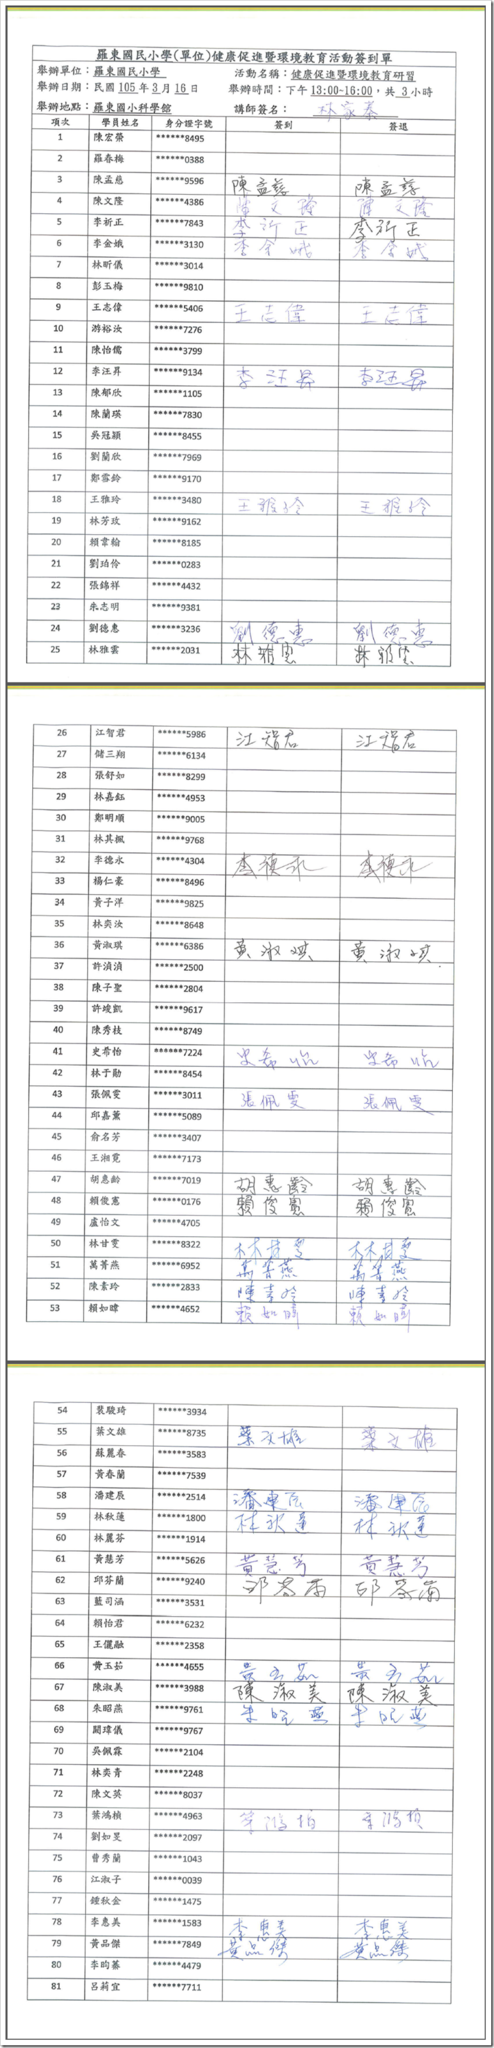 羅東國民小學(單位)健康促進暨環境教育活動簽到單
舉辦單位：羅東國民小學 活動名稱：健康促進暨環境教育研習
舉辦日期：民國 105 年 3 月 16 日 舉辦時間：下午 13:00~16:00，共 3 小時
舉辦地點：羅東國小科學館 講師簽名：
項次 學員姓名 身分證字號 簽到 簽退
1 陳宏榮 ******8495
2 羅春梅 ******0388
3 陳孟慈 ******9596 陳孟慈 陳孟慈
4 陳文隆 ******4386 陳文隆 陳文隆
5 李祈正 ******7843 李祈正 李祈正
6 李金娥 ******3130 李金娥 李金娥
7 林昕儀 ******3014
8 彭玉梅 ******9810
9 王志偉 ******5406 王志偉 王志偉
10 游裕汝 ******7276
11 陳怡儒 ******3799
12 李汪昇 ******9134 李汪昇 李汪昇
13 陳郁欣 ******1105
14 陳蘭瑛 ******7830
15 吳冠穎 ******8455
16 劉蘭欣 ******7969
17 鄭雪鈴 ******9170
18 王雅玲 ******3480 王雅玲 王雅玲
19 林芳玫 ******9162
20 賴韋翰 ******8185
21 劉珀伶 ******0283
22 張錦祥 ******4432
23 朱志明 ******9381
24 劉德惠 ******3236 劉德惠 劉德惠
25 林雅雲 ******2031 林雅雲 林雅雲
26 江智君 ******5986 江智君 江智君
27 儲三翔 ******6134
28 張舒如 ******8299
29 林嘉鈺 ******4953
30 鄭明順 ******9005
31 林其楓 ******9768
32 李德永 ******4304 李德永 李德永
33 楊仁豪 ******8496
34 黃子洋 ******9825
35 林奕汝 ******8648
36 黃淑琪 ******6386 黃淑琪 黃淑琪
37 許湞湞 ******2500
38 陳子聖 ******2804
39 許竣凱 ******9617
40 陳秀枝 ******8749
41 史希怡 ******7224 史希怡 史希怡
42 林于勛 ******8454
43 張佩雯 ******3011 張佩雯 張佩雯
44 邱嘉薰 ******5089
45 俞名芳 ******3407
46 王湘霓 ******7173
47 胡惠齡 ******7019 胡惠齡 胡惠齡
48 賴俊憲 ******0176 賴俊憲 賴俊憲
49 盧怡文 ******4705
50 林甘雯 ******8322 林甘雯 林甘雯
51 萬菁燕 ******6952 萬菁燕 萬菁燕
52 陳素玲 ******2833 陳素玲 陳素玲
53 賴如暐 ******4652 賴如暐 賴如暐
54 裴駿琦 ******3934
55 葉文雄 ******8735 葉文雄 葉文雄
56 蘇麗春 ******3583
57 黃春蘭 ******7539
58 潘建辰 ******2514 潘建辰 潘建辰
59 林秋蓮 ******1800 林秋蓮 林秋蓮
60 林麗芬 ******1914
61 黃慧芳 ******5626 黃慧芳 黃慧芳
62 邱芬蘭 ******9240 邱芬蘭 邱芬蘭
63 藍司涵 ******3531
64 賴怡君 ******6232
65 王儷融 ******2358
66 黃玉茹 ******4655 黃玉茹 黃玉茹
67 陳淑美 ******3988 陳淑美 陳淑美
68 朱昭燕 ******9761 朱昭燕 朱昭燕
69 闕瑋儀 ******9767
70 吳佩霖 ******2104
71 林奕青 ******2248
72 陳文英 ******8037
73 葉鴻楨 ******4963 葉鴻楨 葉鴻楨
74 劉如旻 ******2097
75 曾秀蘭 ******1043
76 江淑子 ******0039
77 鍾秋金 ******1475
78 李惠美 ******1583 李惠美 李惠美
79 黃品傑 ******7849 黃品傑 黃品傑
80 李昀蓁 ******4479
81 呂莉宜 ******7711